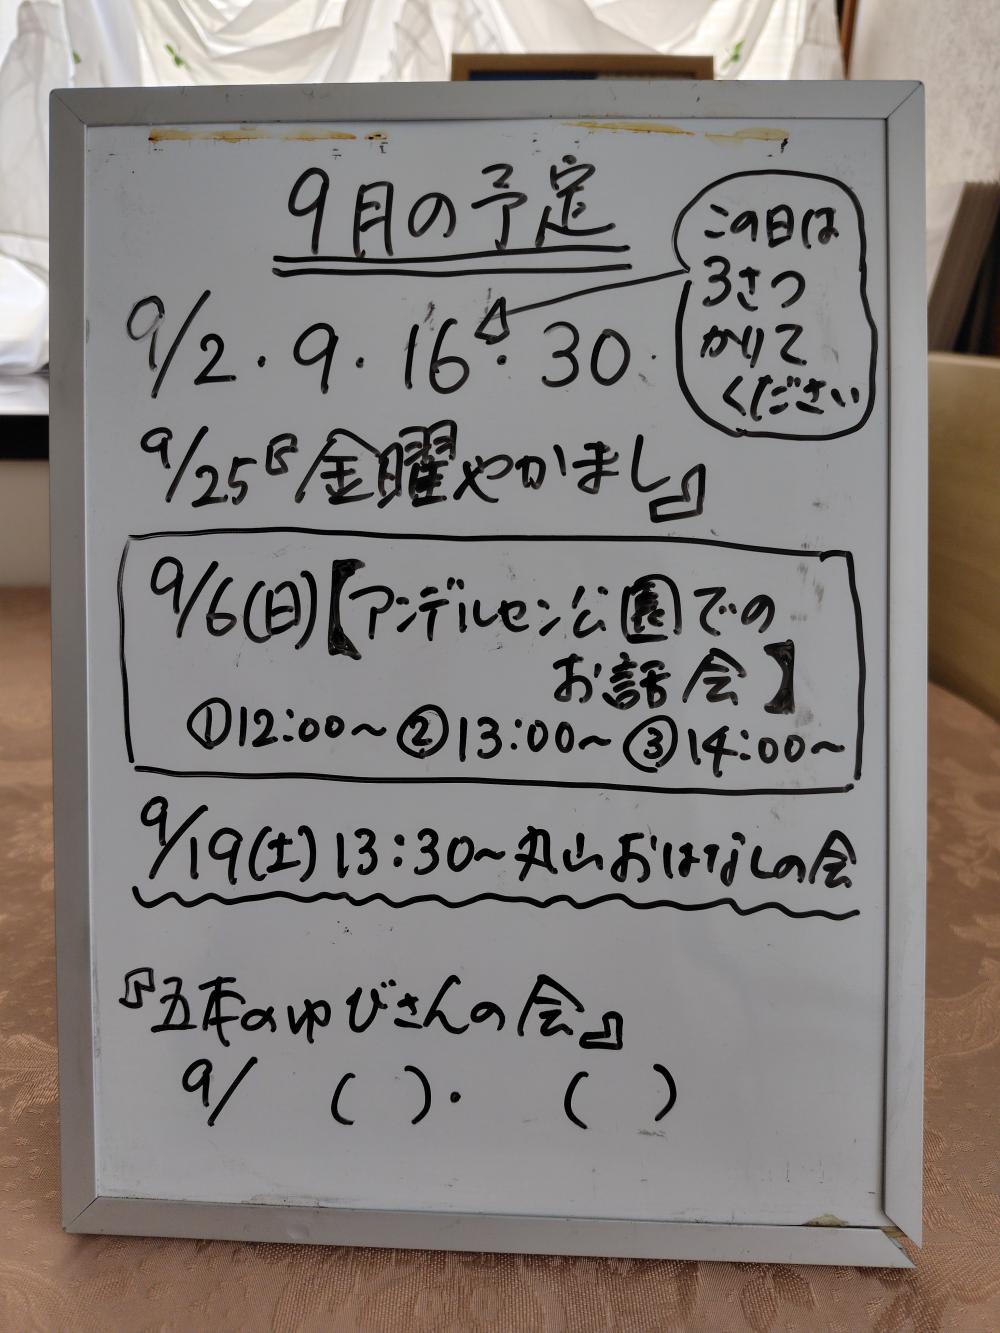 9月の予定
この日は
3さつ
かりて
ください
9/2・9・16・30・
9/25『金曜やかまし』
9/6(日)【アンデルセン公園での
お話会】
①12:00～②13:00～③14:00～
9/19(土)13:30～丸山おはなしの会
『五本のゆびさんの会』
9/ ( )・ ( )